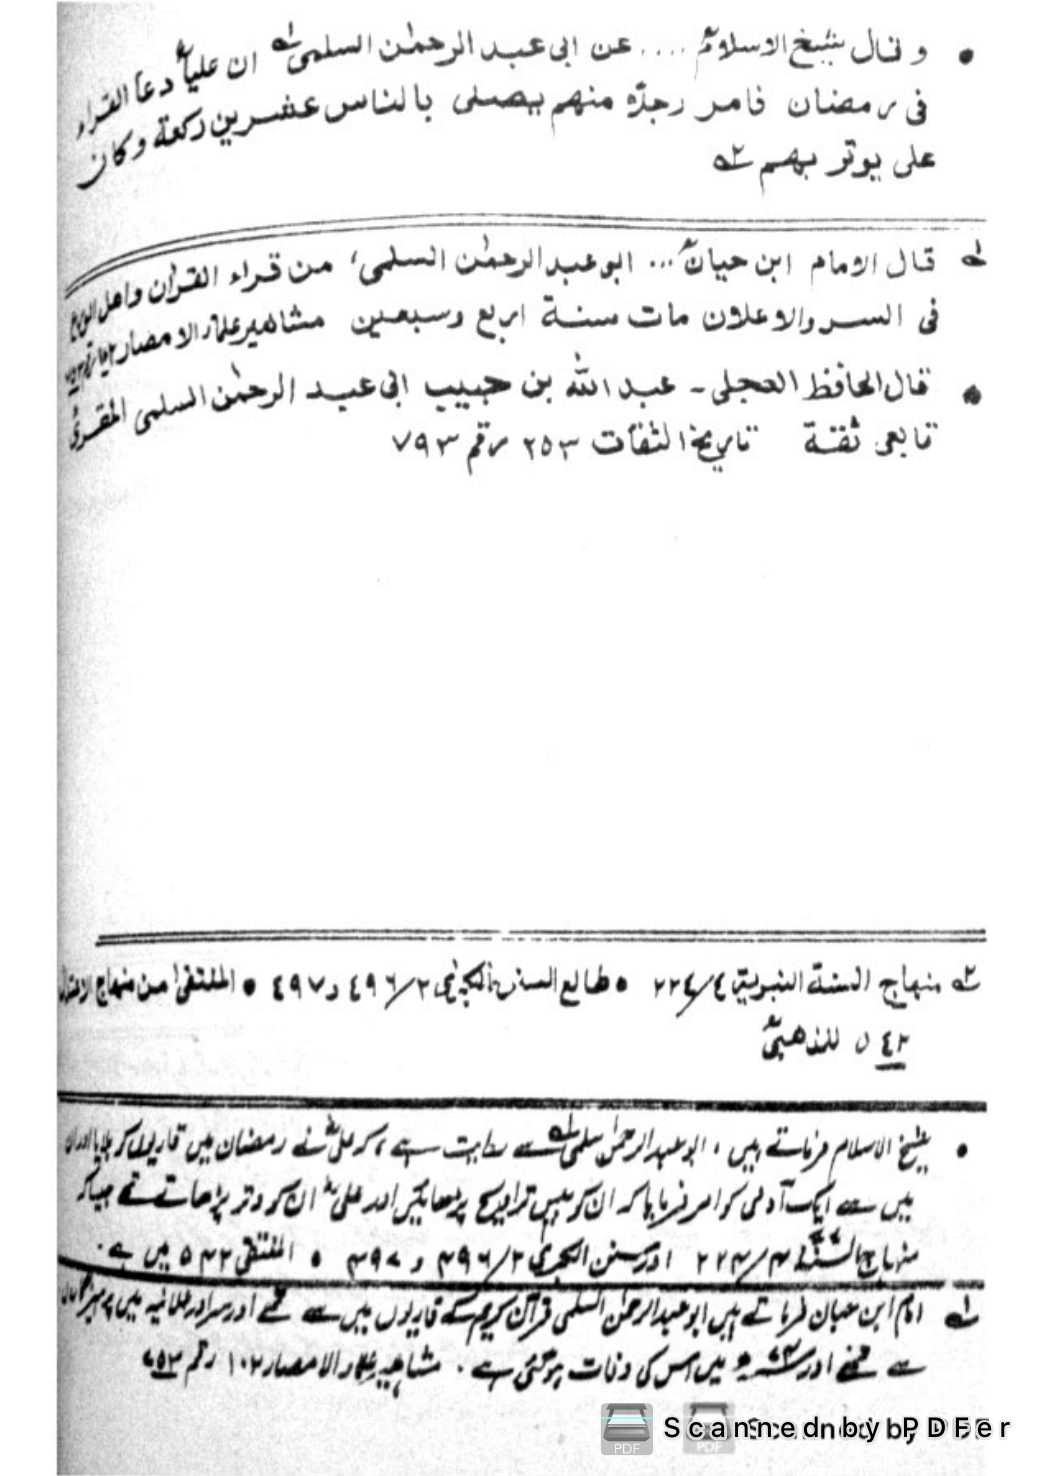 • وقال شيخ الاسلامؒ .... عن ابى عبد الرحمٰن السلمىؒ ان علياؓ دعا القراء
فى رمضان فامر رجلاً منهم يصلى بالناس عشرين ركعة وكان
على يوتر بهم ٢ه
١ه قال الامام ابن حيانؒ ... ابو عبد الرحمٰن السلمى، من قراء القرٰان واهل الورع
فى السر والاعلان مات سنة اربع وسبعين مشاهير علماء الامصار
• قال الحافظ العجلى ـ عبد الله بن حبيب ابى عبد الرحمٰن السلمى المقرئ
تابعى ثقة تاريخ الثقات ٢٥٣ رقم ٧٩٣
٢ه منهاج السنة النبوية ٢٢٤/٤ • ٤٩٦/٢ و ٤٩٧ • المنتقىٰ من منهاج الاعتدال
٥٤٢ للذهبىؒ
• شیخ الاسلام فرماتے ہیں، ابو عبدالرحمٰن سلمیؒ سے روایت ہے، کہ علیؓ نے رمضان میں قاریوں کو بلایا اور ان
میں سے ایک آدمی کو امر فرمایا کہ ان کو بیس تراویح پڑھائیں اور علیؓ ان کو وتر پڑھاتے تھے جیسا کہ
منہاج السنۃ ۲۲۴/۴ اور سنن الکبریٰ ۴۹۶/۲ و ۴۹۷ • المنتقیٰ ۵۴۲ میں ہے۔
١ه امام ابن حبان فرماتے ہیں ابو عبدالرحمٰن السلمی قرآن کریم کے قاریوں میں سے تھے اور سر اور علانیہ میں پرہیزگاروں
سے تھے اور ۷۴ھ میں اس کی وفات ہوگئی ہے۔ مشاہیر علماء الامصار ۱۰۲ رقم ۷۵۳
Scanned by PDFer